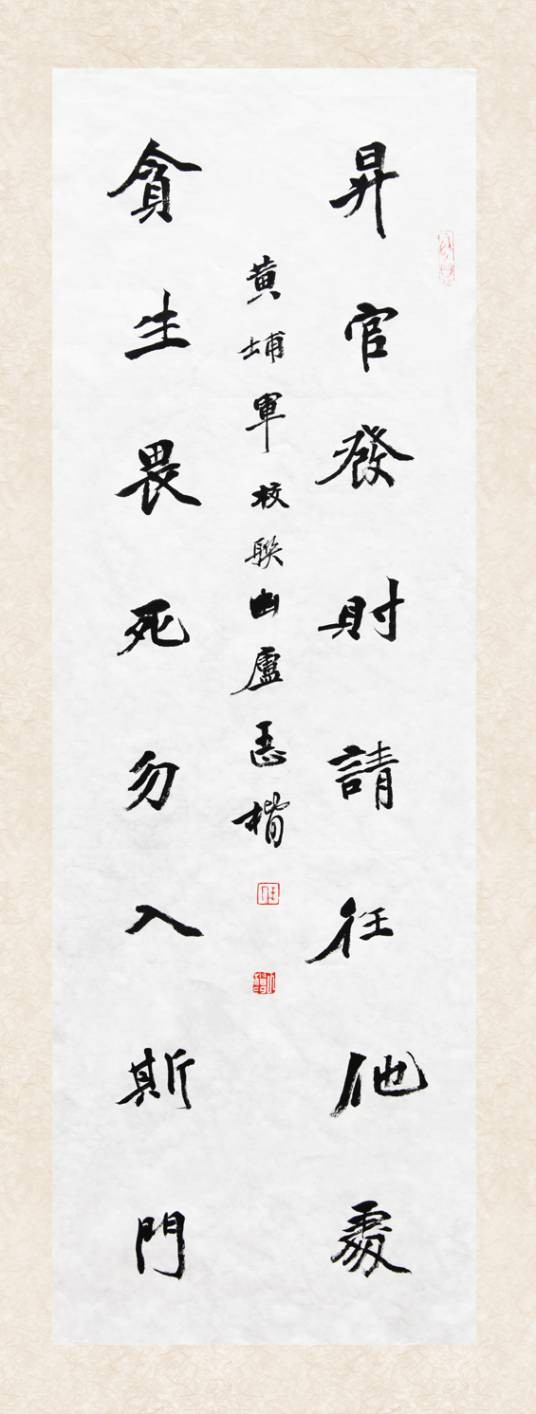 昇官發財請往他處
黄埔軍校聯幽盧楷
貪生畏死勿入斯門